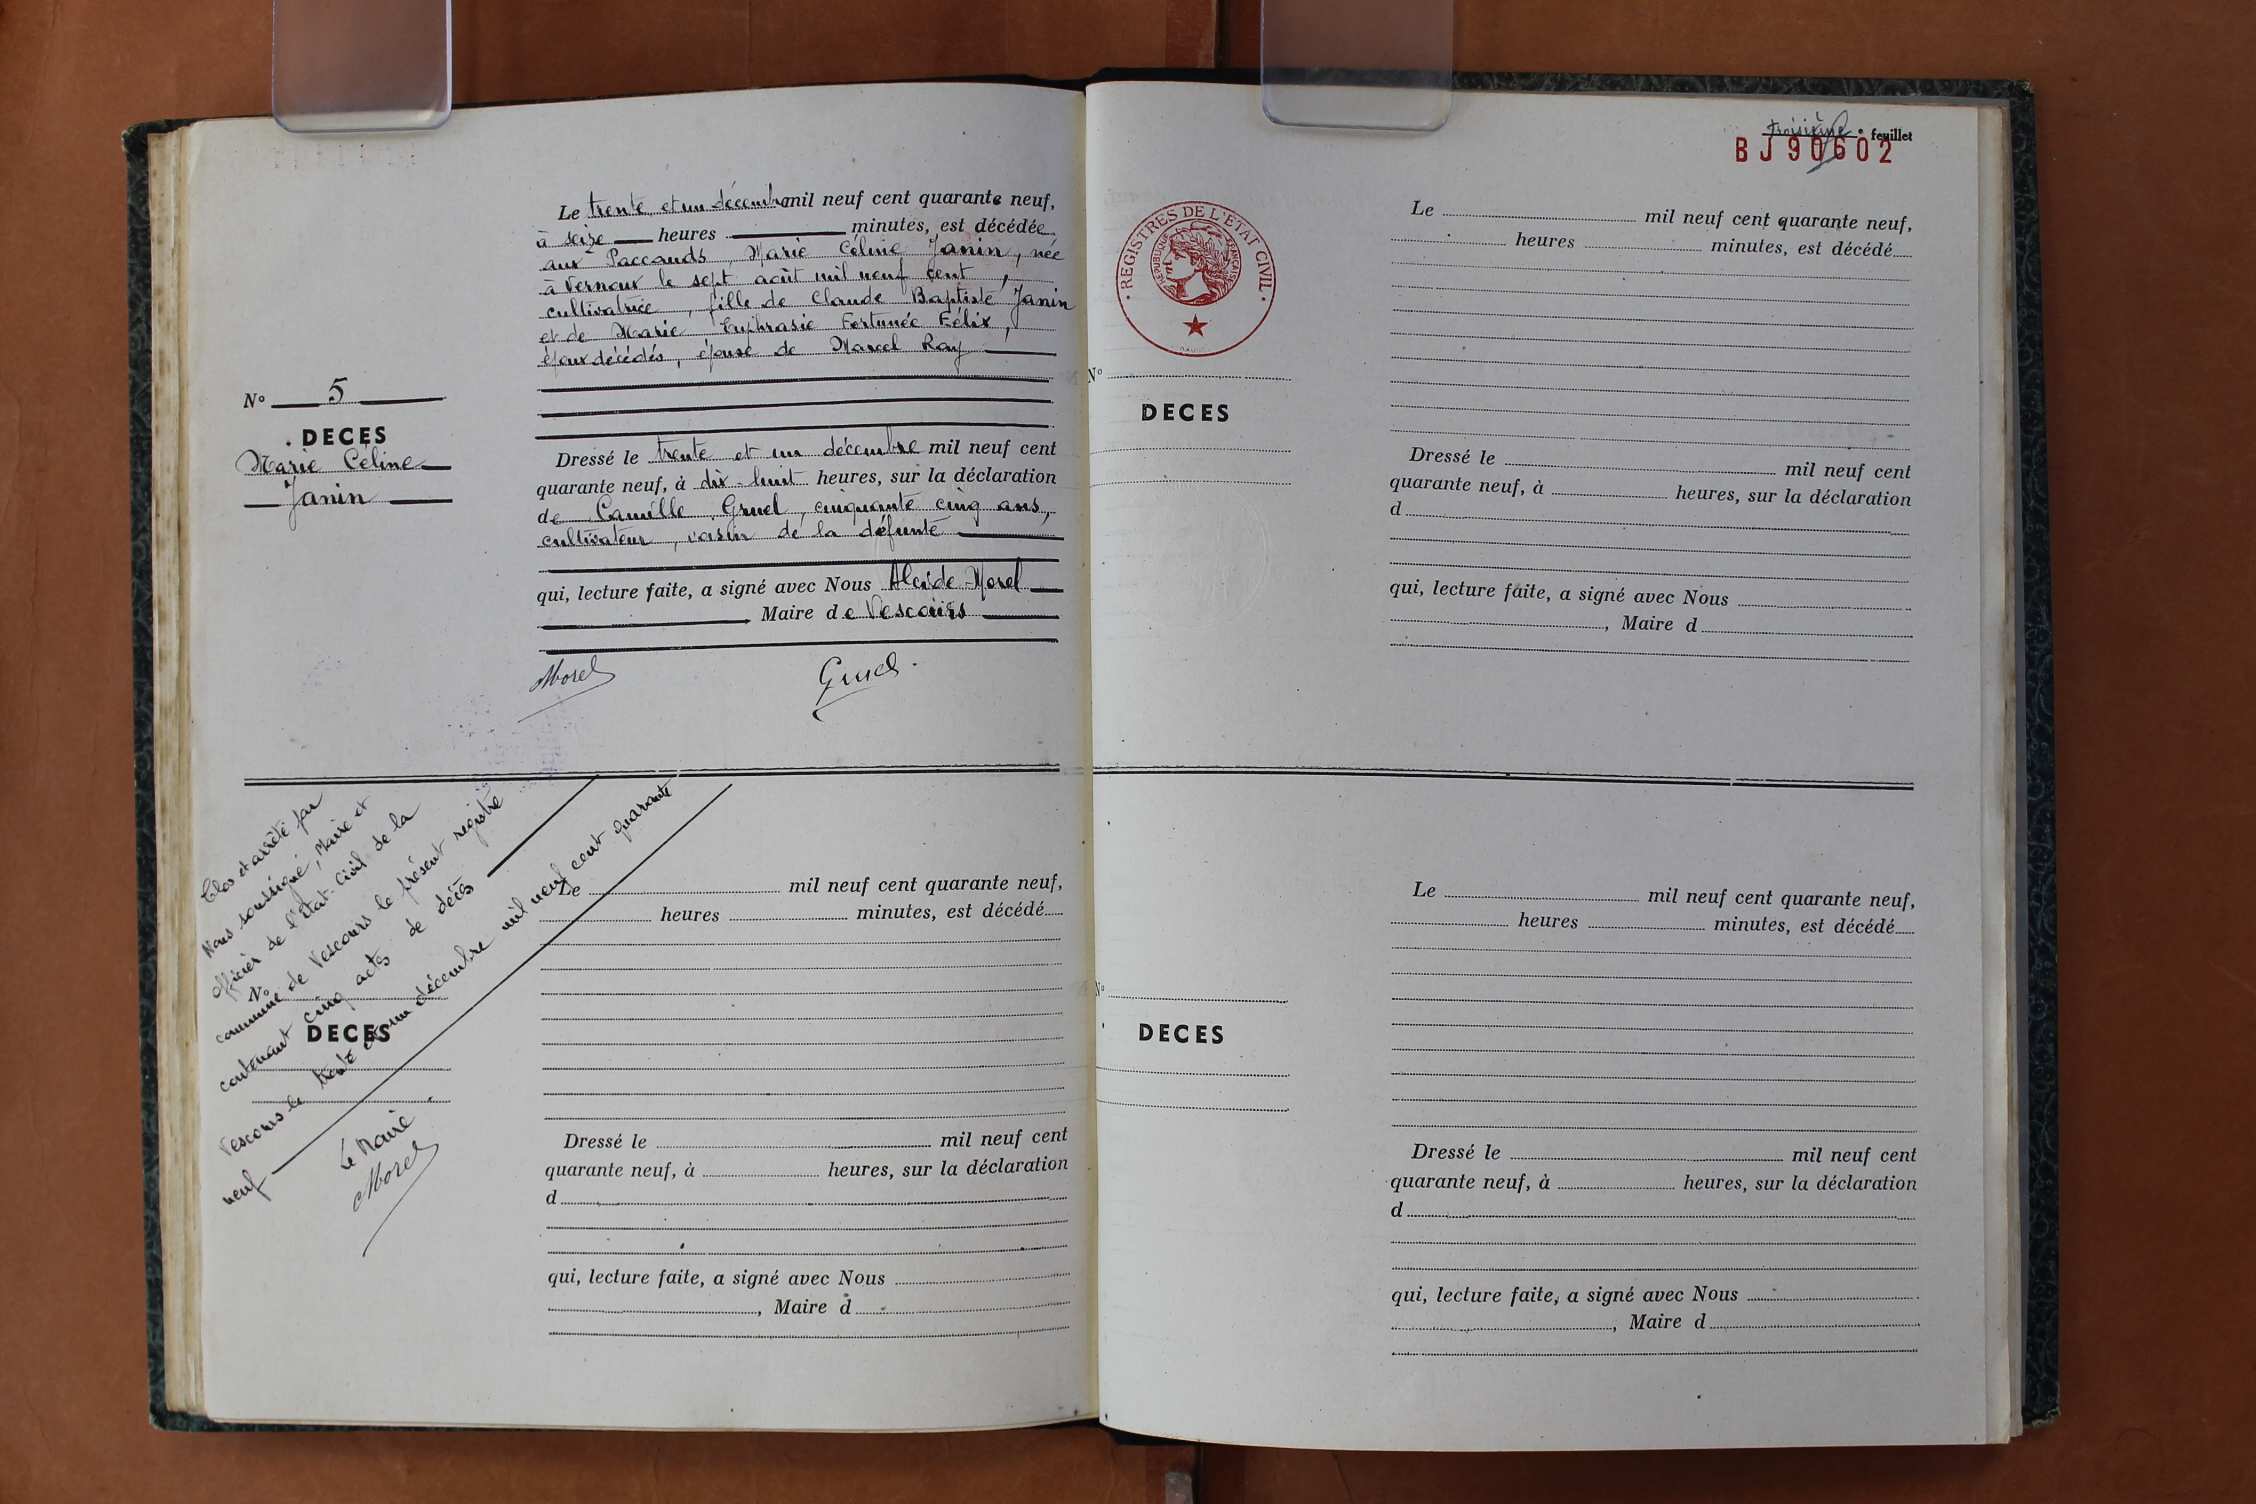 N° 5
DECES
Marie Céline
Janin
Le trente et un décembre mil neuf cent quarante neuf,
à seize heures minutes, est décédée
aux Paccauds, Marie Céline Janin, née
à Vernoux le sept août mil neuf cent,
cultivatrice, fille de Claude Baptiste Janin
et de Marie Euphrasie Fortunée Félix,
époux décédés, épouse de Marcel Ray
Dressé le trente et un décembre mil neuf cent
quarante neuf, à dix-huit heures, sur la déclaration
de Camille Gruel, cinquante cinq ans,
cultivateur, voisin de la défunte
qui, lecture faite, a signé avec Nous Alcide Morel
Maire de Vescours
Morel
Gruel.
Clos et arrêté par
Nous soussigné, Maire et
officier de l'état-civil de la
commune de Vescours le présent registre
contenant cinq actes de décès
Vescours le trente et un décembre mil neuf cent quarante
neuf
Le Maire.
Morel
N°
DECES
Le mil neuf cent quarante neuf,
heures minutes, est décédé
Dressé le mil neuf cent
quarante neuf, à heures, sur la déclaration
d
qui, lecture faite, a signé avec Nous
, Maire d
troisième e feuillet
BJ90602
REGISTRES DE L'ETAT CIVIL
REPUBLIQUE FRANÇAISE
N°
DECES
Le mil neuf cent quarante neuf,
heures minutes, est décédé
Dressé le mil neuf cent
quarante neuf, à heures, sur la déclaration
d
qui, lecture faite, a signé avec Nous
, Maire d
N°
DECES
Le mil neuf cent quarante neuf,
heures minutes, est décédé
Dressé le mil neuf cent
quarante neuf, à heures, sur la déclaration
d
qui, lecture faite, a signé avec Nous
, Maire d